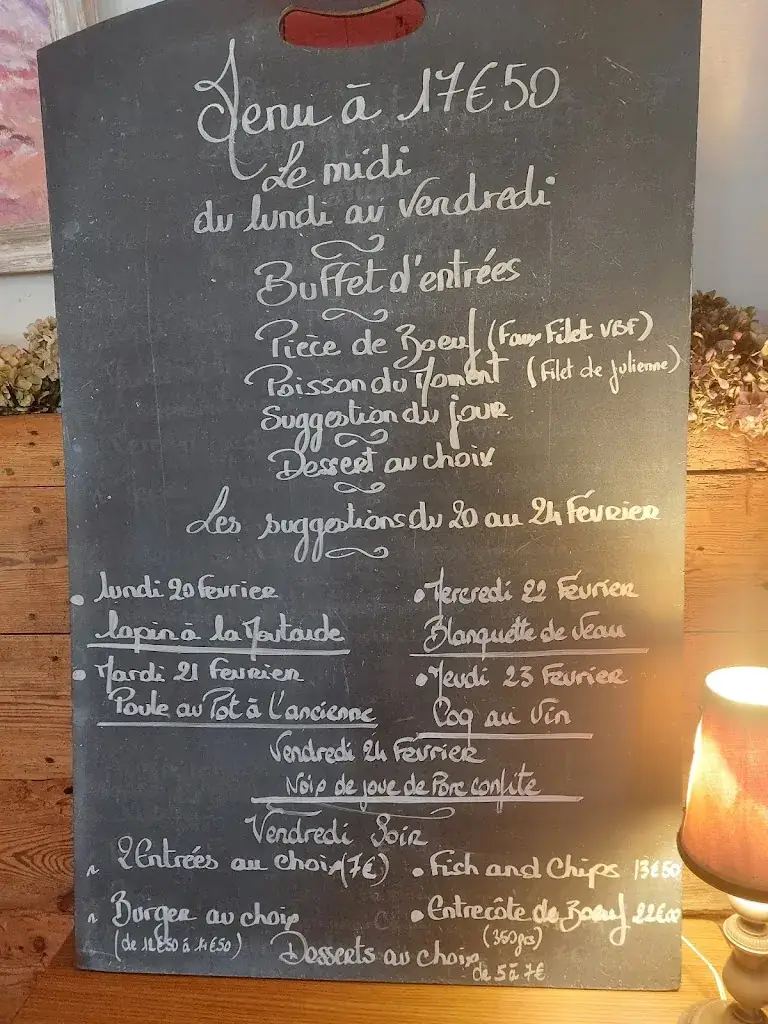 Menu à 17€50
Le midi
du lundi au Vendredi
Buffet d'entrées
Pièce de Boeuf (Faux Filet VBF)
Poisson du Moment (Filet de Julienne)
Suggestion du jour
Dessert au choix
Les suggestions du 20 au 24 Février
• Lundi 20 Fevrier
Lapin à la Moutarde
• Mardi 21 Fevrier
Poule au Pot à L'ancienne
• Mercredi 22 Février
Blanquette de Veau
• Jeudi 23 Fevrier
Coq au Vin
Vendredi 24 Février
Noix de joue de Porc confite
Vendredi Soir
2 Entrées au choix (7€)
• Fish and Chips 13€50
Burger au choix
• Entrecôte de Boeuf 22€00
(de à 14€50)
(350grs)
Desserts au choix
de 5 à 7€